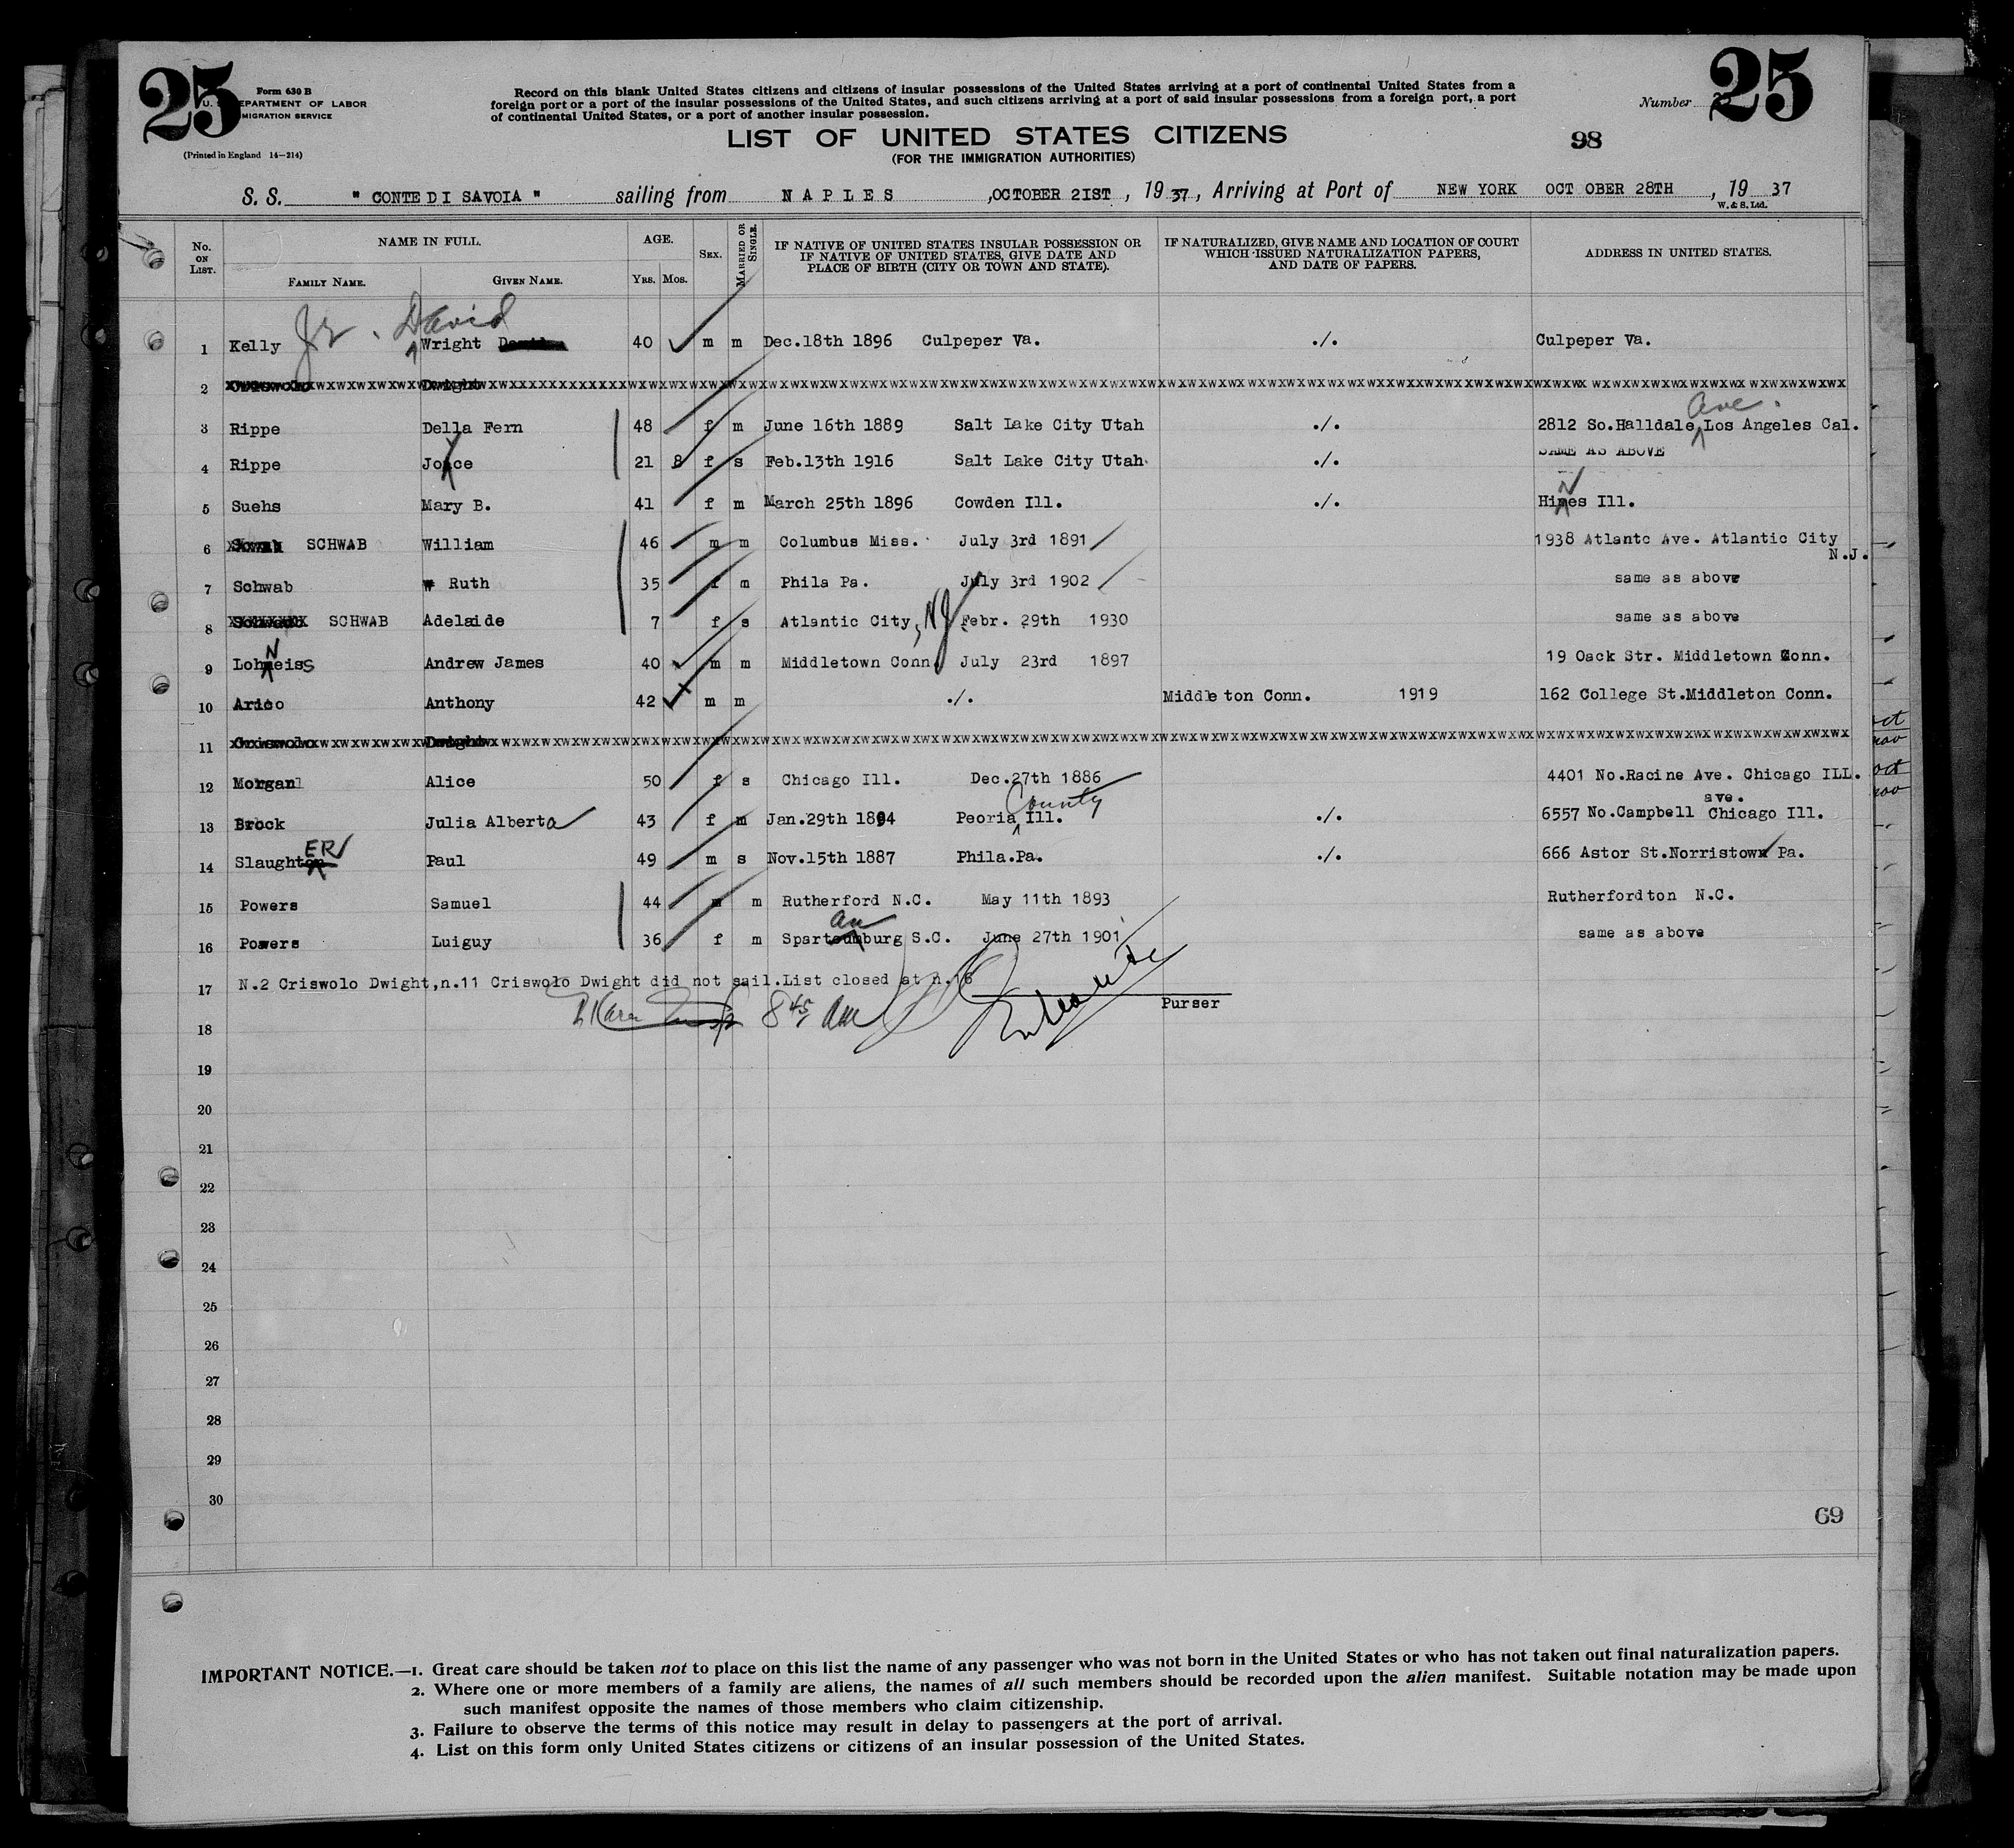 25
Form 630 B
U. S. DEPARTMENT OF LABOR
IMMIGRATION SERVICE
(Printed in England 14—214)
Record on this blank United States citizens and citizens of insular possessions of the United States arriving at a port of continental United States from a
foreign port or a port of the insular possessions of the United States, and such citizens arriving at a port of said insular possessions from a foreign port, a port
of continental United States, or a port of another insular possession.
Number 25
LIST OF UNITED STATES CITIZENS
98
(FOR THE IMMIGRATION AUTHORITIES)
S. S. " CONTE DI SAVOIA " sailing from NAPLES ,OCTOBER 21ST , 1937 , Arriving at Port of NEW YORK OCT OBER 28TH , 19 37
W. & S. Ltd.
No. ON LIST. NAME IN FULL. FAMILY NAME. GIVEN NAME. AGE. YRS. MOS. SEX. MARRIED OR SINGLE. IF NATIVE OF UNITED STATES INSULAR POSSESSION OR IF NATIVE OF UNITED STATES, GIVE DATE AND PLACE OF BIRTH (CITY OR TOWN AND STATE). IF NATURALIZED, GIVE NAME AND LOCATION OF COURT WHICH ISSUED NATURALIZATION PAPERS, AND DATE OF PAPERS. ADDRESS IN UNITED STATES.
1 Kelly Jr. David Wright 40 m m Dec.18th 1896 Culpeper Va. ./. Culpeper Va.
2 Dwight
3 Rippe Della Fern 48 f m June 16th 1889 Salt Lake City Utah ./. 2812 So.Halldale Ave. Los Angeles Cal.
4 Rippe Joyce 21 8 f s Feb.13th 1916 Salt Lake City Utah ./. SAME AS ABOVE
5 Suehs Mary B. 41 f m March 25th 1896 Cowden Ill. ./. Hines Ill.
6 SCHWAB William 46 m m Columbus Miss. July 3rd 1891 1938 Atlantc Ave. Atlantic City N.J.
7 Schwab Ruth 35 f m Phila Pa. July 3rd 1902 same as above
8 SCHWAB Adelaide 7 f s Atlantic City, NJ Febr. 29th 1930 same as above
9 Lohneiss Andrew James 40 m m Middletown Conn. July 23rd 1897 19 Oack Str. Middletown Conn.
10 Arico Anthony 42 m m ./. Middleton Conn. 1919 162 College St.Middleton Conn.
11 Criswolo Dwight
12 Morgan Alice 50 f s Chicago Ill. Dec.27th 1886 4401 No.Racine Ave. Chicago ILL.
13 Brock Julia Alberta 43 f m Jan.29th 1894 Peoria County Ill. ./. 6557 No.Campbell ave. Chicago Ill.
14 SlaughtER Paul 49 m s Nov.15th 1887 Phila.Pa. ./. 666 Astor St.Norristown Pa.
15 Powers Samuel 44 m m Rutherford N.C. May 11th 1893 Rutherfordton N.C.
16 Powers Luiguy 36 f m Spartanburg S.C. June 27th 1901 same as above
17 N.2 Criswolo Dwight,n.11 Criswolo Dwight did not sail.List closed at n.16
8 45 am
Purser
18
19
20
21
22
23
24
25
26
27
28
29
30
69
IMPORTANT NOTICE.—1. Great care should be taken not to place on this list the name of any passenger who was not born in the United States or who has not taken out final naturalization papers.
2. Where one or more members of a family are aliens, the names of all such members should be recorded upon the alien manifest. Suitable notation may be made upon
such manifest opposite the names of those members who claim citizenship.
3. Failure to observe the terms of this notice may result in delay to passengers at the port of arrival.
4. List on this form only United States citizens or citizens of an insular possession of the United States.